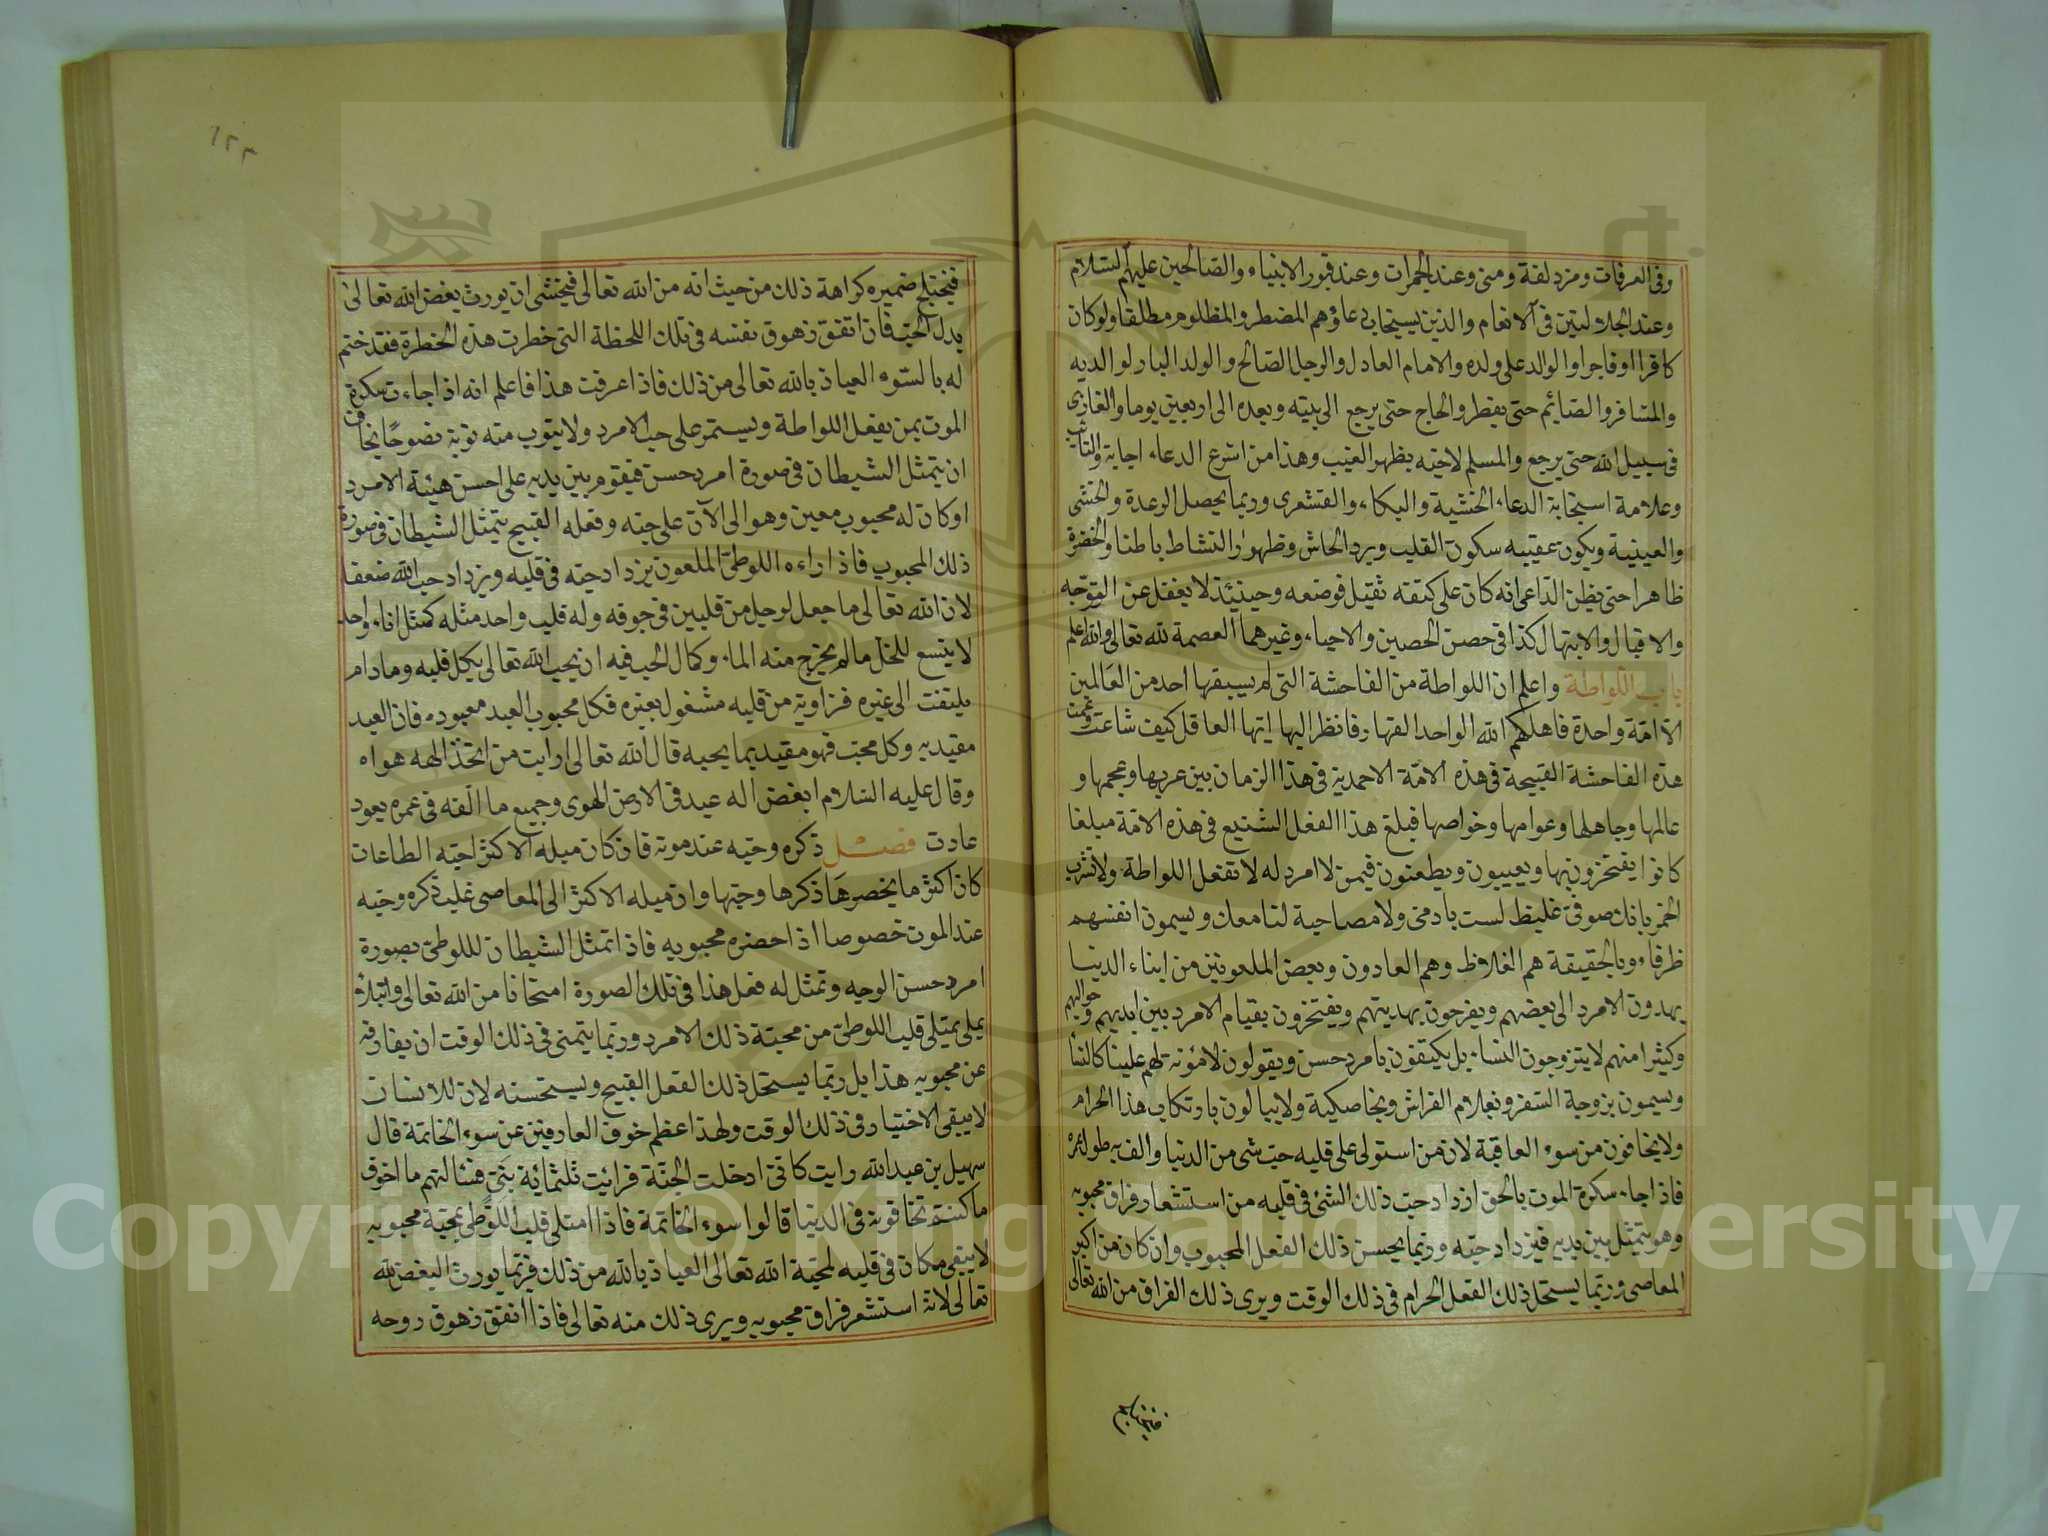 وفى العرفات ومزدلفة ومنى وعند الجمرات وعند قبور الانبياء والصالحين عليهم السلام
وعند الجلالتين فى الانعام والذين يستجاب دعاؤهم المضطر والمظلوم مطلقا ولو كان
كافرا او فاجرا والوالد على ولده والامام العادل والرجل الصالح والولد البار لوالديه
والمسافر والصائم حتى يفطر والحاج حتى يرجع الى بيته وبعده الى اربعين يوما والغازى
فى سبيل الله حتى يرجع والمسلم لاخيه بظهر الغيب وهذا من اسرع الدعاء اجابة والتائب
وعلامة استجابة الدعاء الخشية والبكاء والقشعرى وربما يحصل الرعدة والخشى
والعينية ويكون عقيبه سكون القلب وبرد الجاش وظهور النشاط باطنا والخضرة
ظاهرا حتى يظن الداعى انه كان على كتفه ثقيل فوضعه وحينئذ لا يغفل عن التوجه
والاقبال والابتهال كذا فى حصن الحصين والاحياء وغيرهما العصمة لله تعالى والله اعلم
باب اللواطة واعلم ان اللواطة من الفاحشة التى لم يسبقها احد من العالمين
الا امة واحدة فاهلكهم الله الواحد القهار فانظر اليها ايها العاقل كيف شاعت وعمت
هذه الفاحشة القبيحة فى هذه الامة الاحمدية فى هذا الزمان بين عربها وعجمها و
عالمها وجاهلها وعوامها وخواصها فبلغ هذا الفعل الشنيع فى هذه الامة مبلغا
كانوا يفتخرون بها ويعيبون ويطعنون فيمن لا امرد له لا تفعل اللواطة ولا تشرب
الخمر بانك صوفى غليظ لست بادمى ولا مصاحبة لنا معك ويسمون انفسهم
ظرفاء وبالحقيقة هم الغلاظ وهم العادون وبعض الملعونين من ابناء الدنيا
يهدون الامرد الى بعضهم ويفرحون بهديتهم ويفتخرون بقيام الامرد بين ايديهم وحواليهم
وكثيرا منهم لا يتزوجون النساء بل يكتفون بامرد حسن ويقولون لا مؤنة لهم علينا كالنساء
ويسمون بزوجة السفر وبغلام الفراش وبخاصكية ولا يبالون بارتكاب هذا الحرام
ولا يخافون من سوء العاقبة لان من استولى على قلبه حب شئ من الدنيا والف به طول عمره
فاذا جاء سكرة الموت بالحق ازداد حب ذلك الشئ فى قلبه من استشعار فراق محبوبه
وهو يتمثل بين يديه فيزداد حبه وربما يحسن ذلك الفعل المحبوب وان كان من اكبر
المعاصى وربما يستحل ذلك الفعل الحرام فى ذلك الوقت ويرى ذلك الفراق من الله تعالى
١٢٣
فيختلج ضميره كراهة ذلك من حيث انه من الله تعالى فيخشى ان يورث بغض الله تعالى
بدل الحب فان اتفق زهوق نفسه فى تلك اللحظة التى خطرت هذه الخطرة فقد ختم
له بالسوء العياذ بالله تعالى من ذلك فاذا عرفت هذا فاعلم انه اذا جاءت سكرة
الموت بمن يفعل اللواطة ويستمر على حب الامرد ولا يتوب منه توبة نصوحا يخاف
ان يتمثل الشيطان فى صورة امرد حسن فيقوم بين يديه على احسن هيئة الامرد
او كان له محبوب معين وهو الى الآن على حبه وفعله القبيح يتمثل الشيطان فى صورة
ذلك المحبوب فاذا راءه اللوطى الملعون يزداد حبه فى قلبه ويزداد حب الله ضعفا
لان الله تعالى ما جعل لرجل من قلبين فى جوفه وله قلب واحد مثله كمثل اناء واحد
لا يتسع للخل ما لم يخرج منه الماء وكمال الحب فيه ان يحب الله تعالى بكل قلبه وما دام
يلتفت الى غيره فزاوية من قلبه مشغول بغيره فكل محبوب العبد معبوده فان العبد
مقيد به وكل محب فهو مقيد بما يحبه قال الله تعالى ارايت من اتخذ الهه هواه
وقال عليه السلام ابغض اله عبد فى الارض الهوى وجميع ما الفه فى عمره يعود
عادت فصل ذكره وحبه عند موته فان كان ميله الاكثر احبه الطاعات
كان اكثر ما يحضرها ذكرها وحبها وان ميله الاكثر الى المعاصى غلب ذكره وحبه
عند الموت خصوصا اذا حضره محبوبه فاذا تمثل الشيطان للوطى بصورة
امرد حسن الوجه وتمثل له فعل هذا فى تلك الصورة امتحانا من الله تعالى وابتلاء
يملى يمتلى قلب اللوطى من محبة ذلك الامرد وربما يتمنى فى ذلك الوقت ان يفارقه
عن محبوبه هذا بل ربما يستحل ذلك الفعل القبيح ويستحسنه لان للانسان
لا يبقى الاختيار فى ذلك الوقت ولهذا عظم خوف العارفين عن سوء الخاتمة قال
سهيل بن عبد الله رايت كانى ادخلت الجنة فرائيت ثلثمائة نبى فسئالتهم ما اخوف
ما كنتم تخافونه فى الدنيا قالوا سوء الخاتمة فاذا امتلى قلب اللوطى بمحبة محبوبه
لا يبقى مكان فى قلبه لمحبة الله تعالى العياذ بالله من ذلك فربما يورث البغض لله
تعالى لانه استشعر فراق محبوبه ويرى ذلك منه تعالى فاذا اتفق زهوق روحه
فيختلج
Copyright © King Saud University